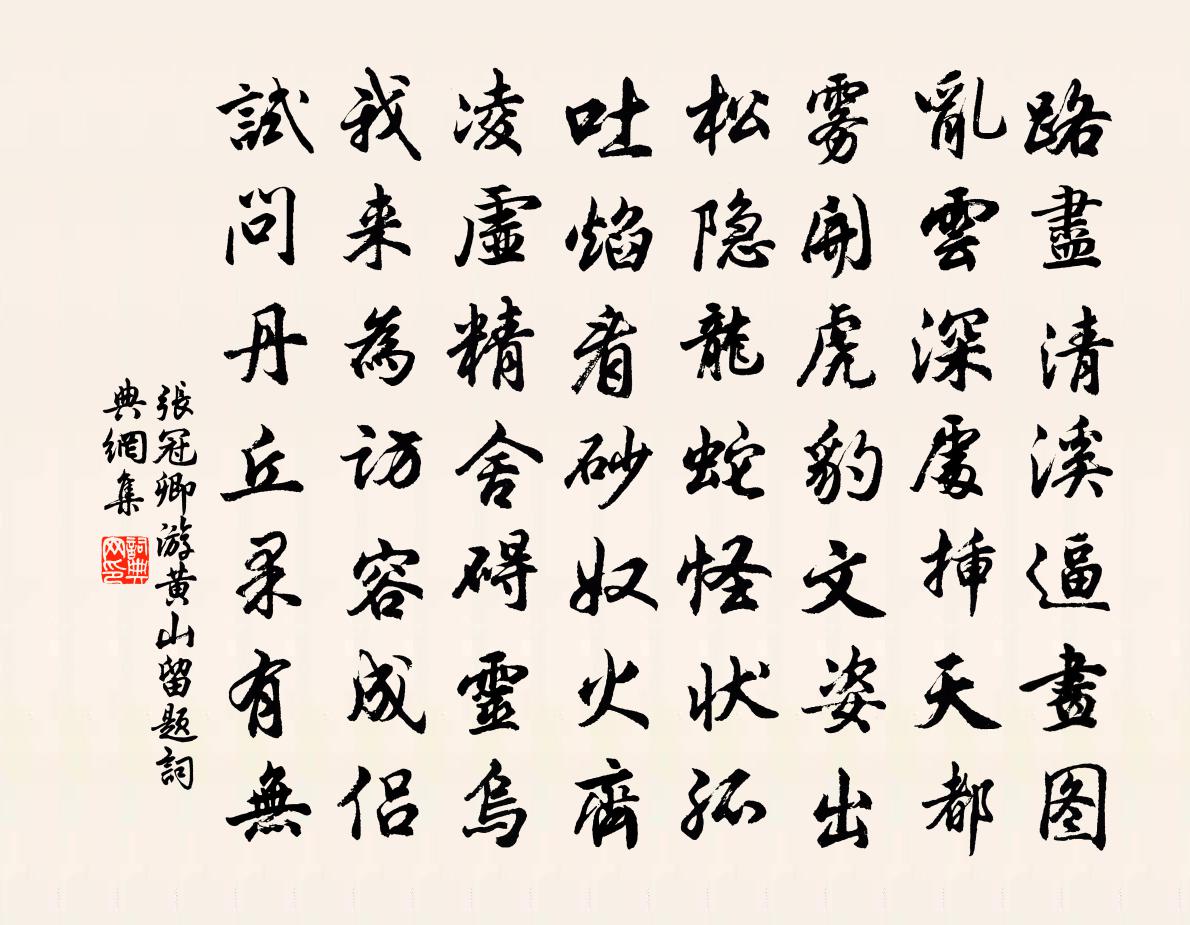 路盡清溪逼畫图
亂雲深處挿天都
雾開虎豹文姿出
松隐龍蛇怪状孤
吐焰看砂奴火齊
凌虛精舍碍靈烏
我来為访容成侣
試问丹丘果有無
張冠卿游黄山留題詞
典網集
詞典网印